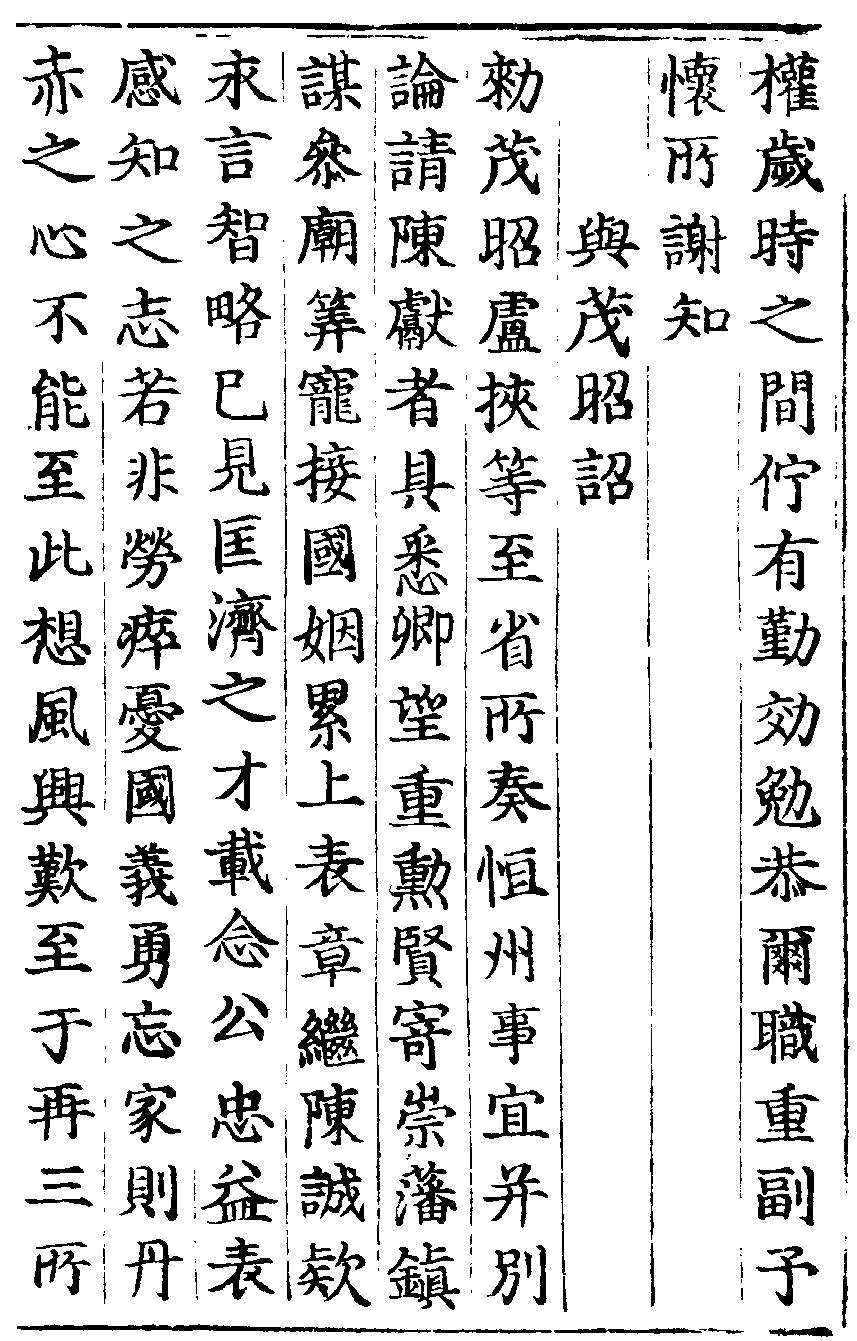 權歲時之間佇有勤効勉恭爾職重副予
懷所謝知
與茂昭詔
勑茂昭盧挾等至省所奏恒州事宜并別
論請陳獻者具悉卿望重勳賢寄崇藩鎮
謀叅廟筭寵接國姻累上表章繼陳誠欵
永言智略已見匡濟之才載念公忠益表
感知之志若非勞瘁憂國義勇忘家則丹
赤之心不能至此想風興歎至于再三所